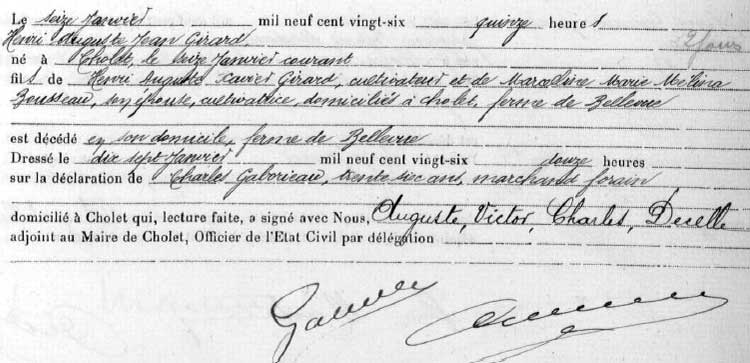 Le seize Janvier mil neuf cent vingt-six quinze heures
Henri Auguste Jean Girard 2 jours
né à Cholet, le seize Janvier courant
fils de Henri Auguste Xavier Girard, cultivateur et de Marceline Marie Mélina
Bousseau, son épouse, cultivatrice, domiciliés à Cholet, ferme de Bellevue
est décédé en son domicile, ferme de Bellevue
Dressé le dix sept Janvier mil neuf cent vingt-six douze heures
sur la déclaration de Charles Gaborieau, trente six ans, marchand forain
domicilié à Cholet qui, lecture faite, a signé avec Nous, Auguste, Victor, Charles, Decelle
adjoint au Maire de Cholet, Officier de l'Etat Civil par délégation